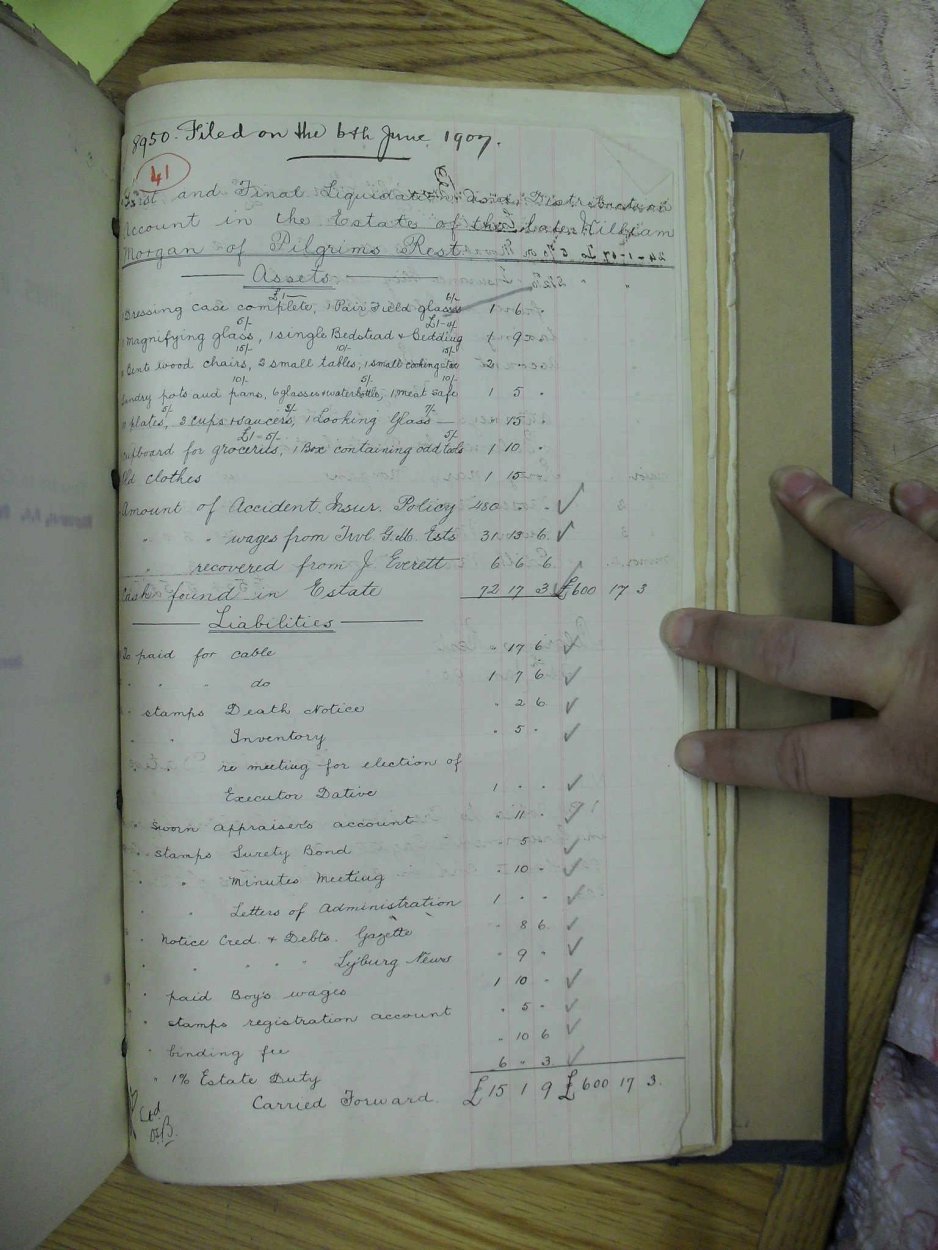 8950. Filed on the 6th June. 1907.
41
First and Final Liquidation and Distribution
Account in the Estate of the Late William
Morgan of Pilgrims Rest.
Assets
£1 — 6/-
1 Dressing case complete, 1 Pair Field glasses 1 6 .
5/- £1-4/-
1 Magnifying glass, 1 single Bedstead & Bedding 1 9 .
15/- 10/- 15/-
Bent wood chairs, 2 small tables, 1 small cooking stove 2 . .
10/- 5/- 10/-
Sundry pots and pans, 6 glasses & waterbottle, 1 meat safe 1 5 .
5/- 3/- 7/-
plates, 3 cups & saucers, 1 Looking Glass — . 15 .
£1-5/- 5/-
cupboard for groceries, 1 Box containing odd tools 1 10 .
Old clothes 1 15 .
Amount of Accident Insur. Policy 480 . . ✓
" " wages from Tvl G.M. Ests 31 13 6 ✓
" recovered from J. Everett 6 6 6 ✓
Cash found in Estate 72 17 3 ✓ £600 17 3
Liabilities
To paid for cable " 17 6 ✓
" " " do 1 7 6 ✓
" stamps Death Notice " 2 6 ✓
" " Inventory " 5 " ✓
" " re meeting for election of
Executor Dative 1 " " ✓
" Sworn Appraiser's account " 11 " ✓
" stamps Surety Bond " 5 " ✓
" " Minutes Meeting " 10 " ✓
" " Letters of Administration 1 " " ✓
" Notice Cred. & Debts. Gazette " 8 6 ✓
" " " " " Lyburg News " 9 " ✓
" paid Boy's wages 1 10 " ✓
" stamps registration account " 5 " ✓
" binding fee " 10 6 ✓
" 1% Estate Duty 6 " 3 ✓
Carried Forward. £15 1 9 £600 17 3.